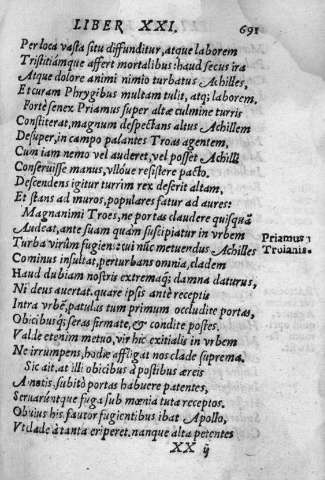 LIBER XXI. 691
Per loca vasta situ diffunditur, atque laborem
Tristitiamque affert mortalibus: haud secus ira
Atque dolore animi nimio turbatus Achilles,
Et curam Phrygibus multam tulit, atq; laborem,
Fortè senex Priamus super altæ culmine turris
Constiterat, magnum despectans altus Achillem
Desuper, in campo palantes Troas agentem,
Cum iam nemo vel auderet, vel posset Achilli
Conseruisse manus, vllóue resistere pacto.
Descendens igitur turrim rex deserit altam,
Et stans ad muros, populares fatur ad aures:
Magnanimi Troes, ne portas claudere quisquā
Audeat, ante suam quàm suscipiatur in vrbem
Turba virûm fugiens: tui nūc metuendus Achilles
Cominus insultat, perturbans omnia, cladem
Haud dubiam nostris extremāq; damna daturus,
Ni deus auertat. quare ipsis antè receptis
Intra vrbē, patulas tum primum occludite portas,
Obicibusq; seras firmate, & condite postes.
Valde etenim metuo, vir hic exitialis in vrbem
Ne irrumpens, hodie affligat nos clade suprema.
Sic ait, at illi obicibus à postibus æreis
Amotis, subitò portas habuere patentes,
Seruarúntque fuga sub mœnia tuta receptos.
Obuius his fautor fugientibus ibat Apollo,
Vt clade à tanta eriperet. nanque alta petentes
Priamus
Troianis.
XX ij